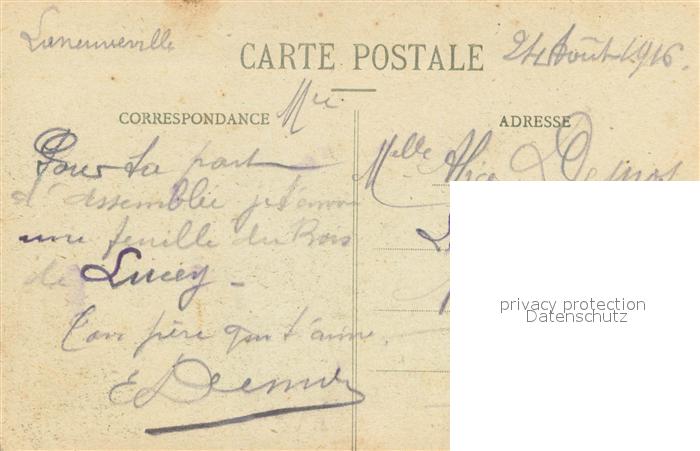 Laneuveville
CARTE POSTALE
24 Août 1916.
CORRESPONDANCE
ADRESSE
Pour ta part
d'Assemblée je t'envoi
une feuille du Bois
de Lucey -
Ton père qui t'aime.
Melle Alice
privacy protection
Datenschutz